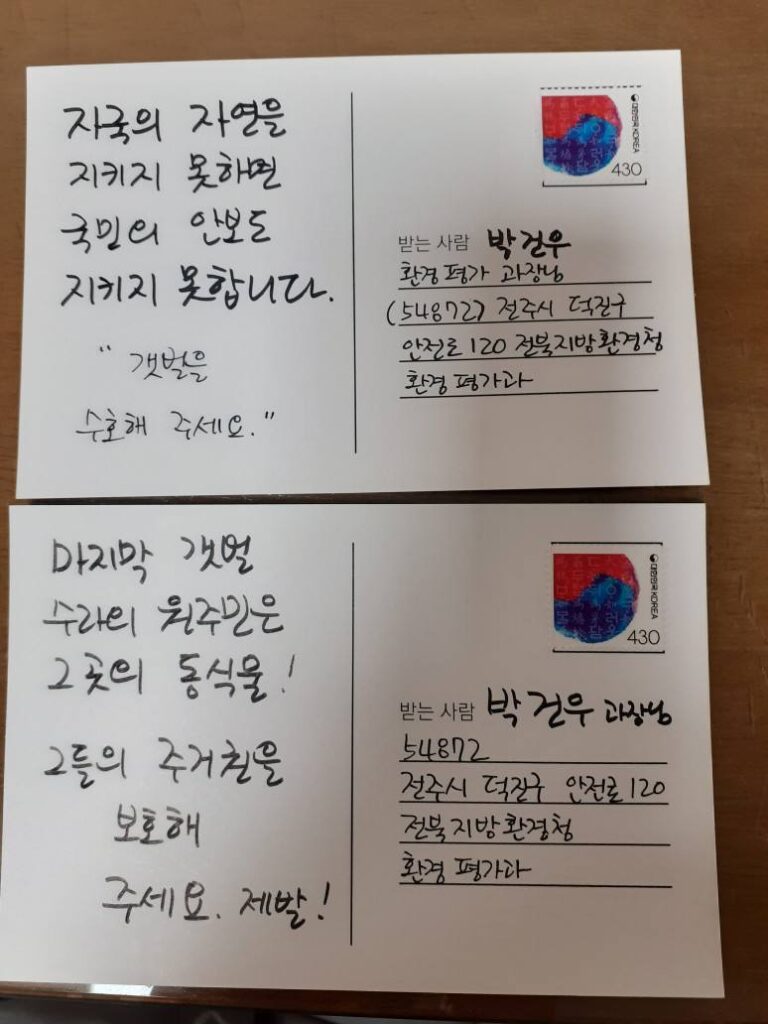 자국의 자연을
지키지 못하면
국민의 안보도
지키지 못합니다.
"갯벌을
수호해 주세요."
대한민국 KOREA
430
받는 사람 박건우
환경평가 과장님
(54872) 전주시 덕진구
안전로 120 전북지방환경청
환경평가과
마지막 갯벌
수라의 원주민은
그곳의 동식물!
그들의 주거권을
보호해
주세요. 제발!
대한민국 KOREA
430
받는 사람 박건우 과장님
54872
전주시 덕진구 안전로 120
전북지방환경청
환경평가과